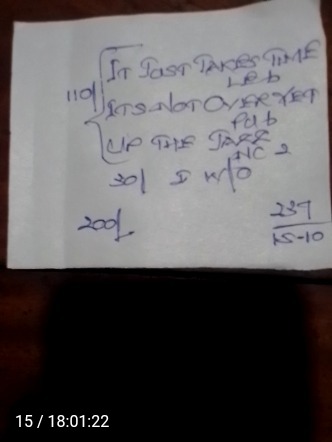 110/ IT JUST TAKES TIME
LCB
ITS NOT OVER YET
PCB
UP THE JARR
NC 2
30/ I W/O
200/-
237
15-10
15 / 18:01:22